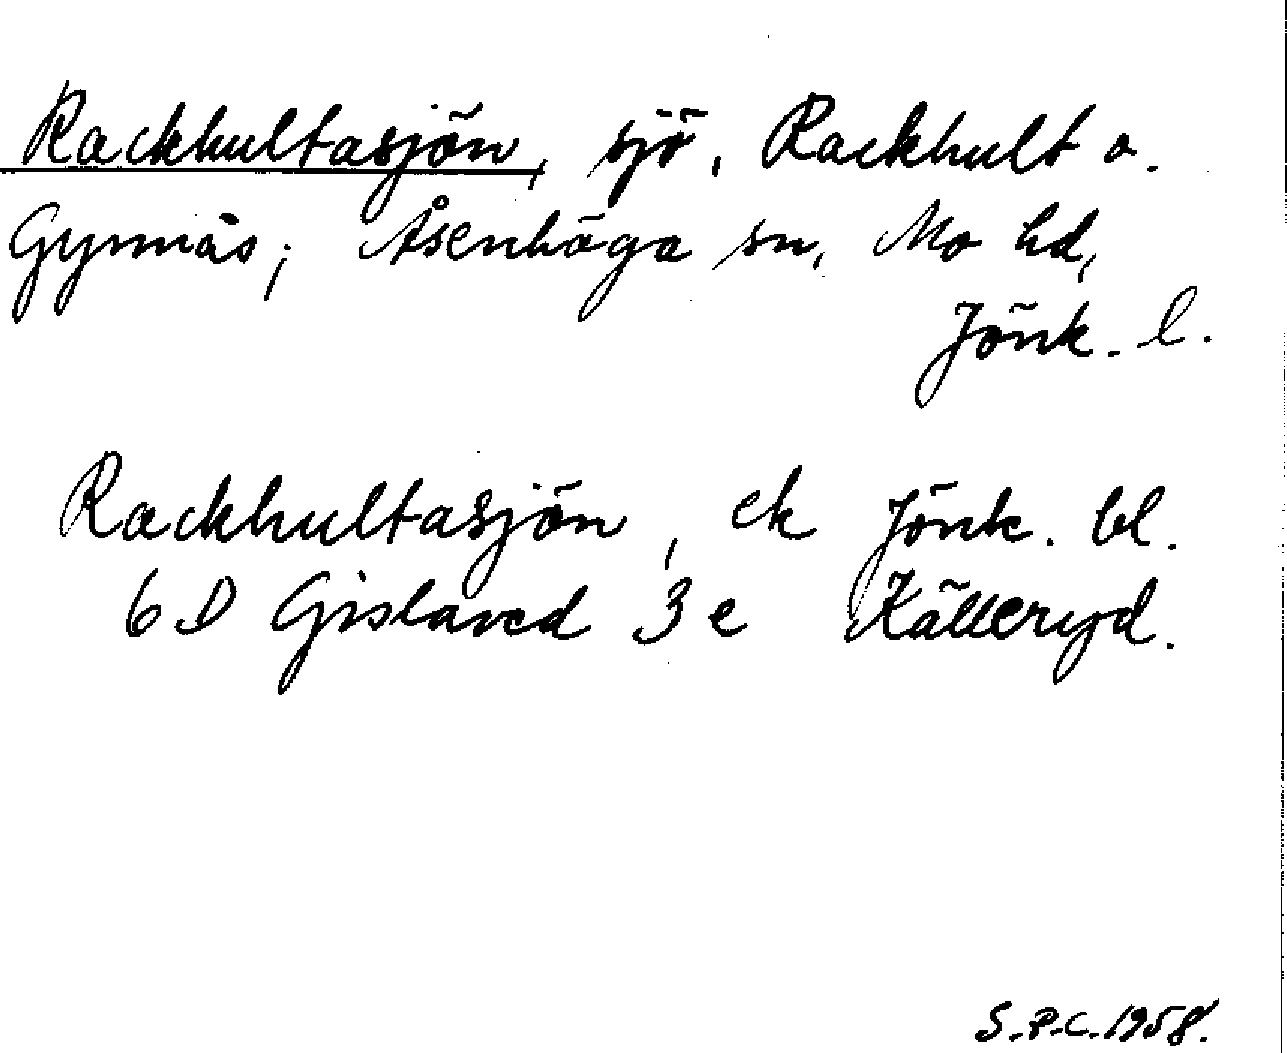 Rackhultasjön, sjö, Rackhult o.
Gynnås; Åsenhöga sn, Mo hd,
Jönk. l.
Rackhultasjön, ek Jönk. bl.
6 D Gislaved 3 e Källeryd.
S.P.C. 1958.